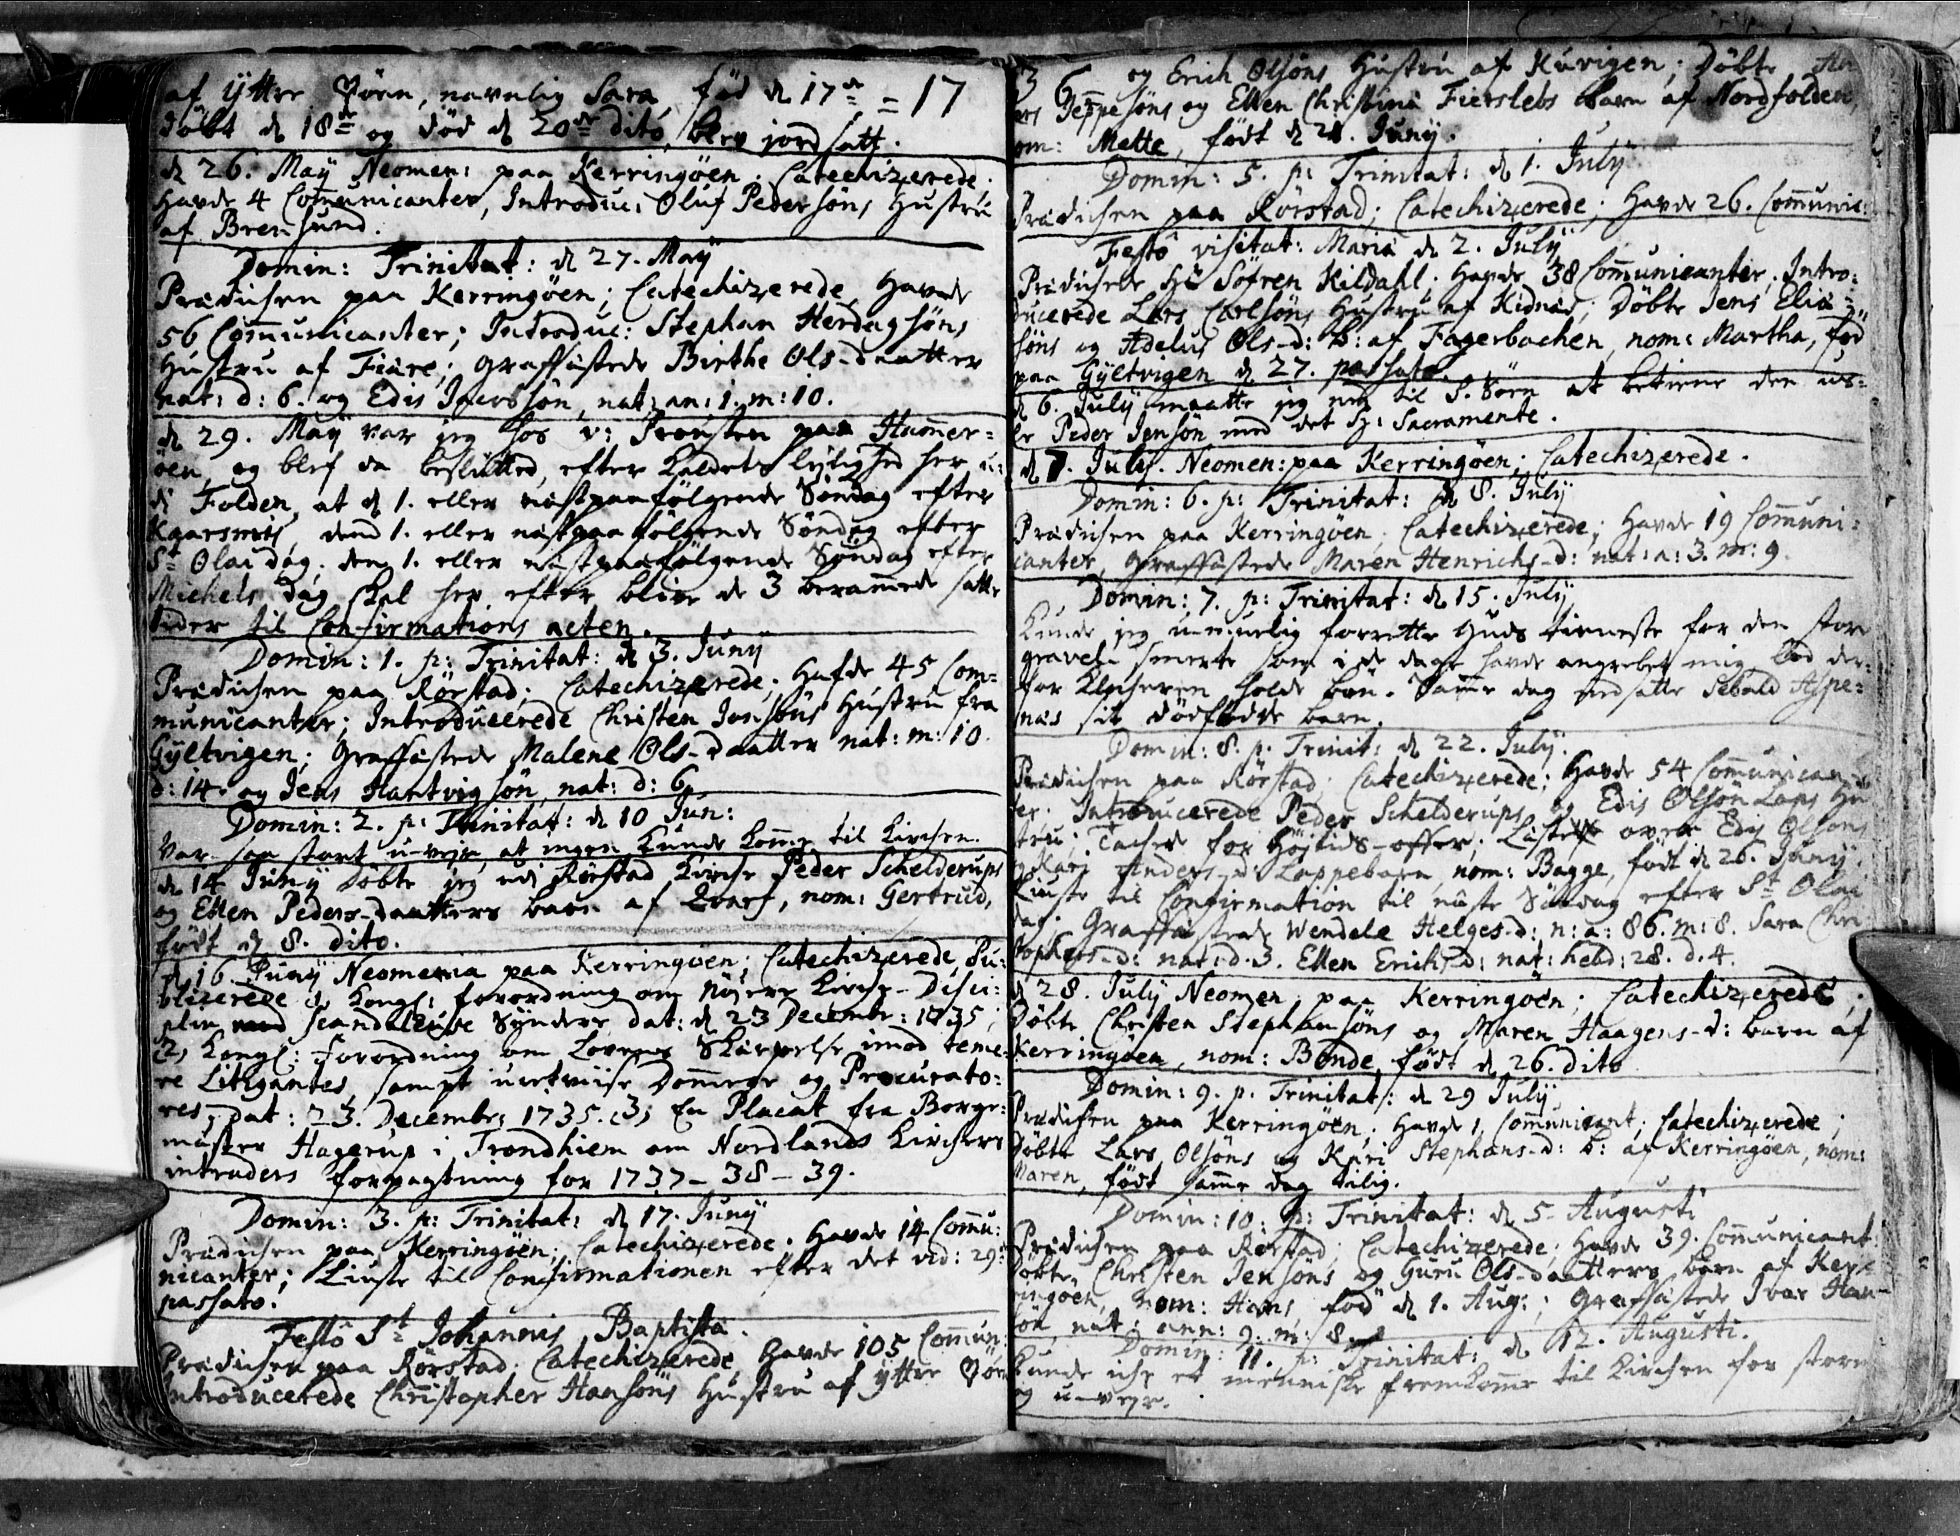 af Yttre Vören, navnlig Sara, fød d 17de = 17
döbt d 18de og död d 20de dito, blev jordsatt.
d 26. Maÿ Neomen: paa Kerringöen; Catechizerede;
havde 4 Communicanter, Introduc: Oluf Pedersöns Hustru
af Brensund.
Domin: Trinitat: d 27. Maÿ
Prædichen paa Kerringöen; Catechizerede, havde
56 Communicanter; Introduc: Stephan Herdagsöns
Hustru af Fiære; Graffæstede Birthe Ols-daatter
nat: d: 6. og Edis Jacobsön, nat: an: 1. m: 10.
d 29. Maÿ var jeg hos v: Prousten paa Hammer=
öen, og blef da beslutted, efter Kaldets leylighed her
i Folden, at d 1. eller næstpaafölgende Söndag efter
Kaarsmis, dend 1. eller næstpaafölgende Söndag efter
St Olai dag, den 1. eller næstpaafölgende Söndag efter
Michels dag skal her efter blive de 3 berammede satte
tider til Confirmations acten.
Domin: 1. p: Trinitat: d 3. Junÿ
Prædichen paa Rörstad; Catechizerede. Hafde 45 Com=
municanter; Introducerede Christen Jonsöns Hustru fra
Gyltvigen; Graffæstede Malene Ols-daatter nat: m: 10.
d: 14. og Jens Hartvigsön, nat: d: 6.
Domin: 2. p: Trinitat: d 10 Jun:
Var saa stort u-vejr, at ingen kunde komme til kirchen.
d 14 Junÿ döbte jeg udi Rörstad Kirche Peder Schelderups
og Ellen Peders-daatters barn af Qvarf, nom: Gertrud,
född d 8. dito.
d 16. Junÿ Neomenia paa Kerringöen; Catechizerede, Pu=
blizerede 1, Kongl: forordning om nöjere Kirche-Disci=
plin mod scandaleuse Syndere, dat: d 23 Decembr: 1735;
2, Kongl: Forordning om Lovens Skierpelse imod teme=
re Litigantes, sampt uretviise Dommere og Procurato=
res, dat: 23. Decembr: 1735. 3, En Placat fra Borge=
mæster Hagerup i Trondhiem om Nordlands Kirchers
intraders forpagtning for 1737-38-39.
Domin: 3. p: Trinitat: d 17. Junÿ
Prædichen paa Kerringöen; Catechizerede. Havde 14 Commu:
nicanter; Liuste til Confirmationen efter det vid: 29
passato.
Festo St Johannis Baptistæ.
Prædichen paa Rörstad; Catechizerede, havde 105 Commun:
Introducerede Christopher Hansöns Hustru af yttre Vör
36 og Erich Olsöns Hustru af Kurigen; Döbte
Jeppesöns og Ellen Christina Fierslebs barn af Nordfolden,
nom: Mette, födt d 21. Junÿ.
Domin: 5. p: Trinitat: d 1. Julÿ
Prædichen paa Rörstad; Catechizerede; Havde 26. Communic:
Festo visitat: Mariæ d 2. Julÿ
Prædichede Hr Söfren Kildahl; havde 38 Communicanter; Intro:
ducerede Lars Carlsöns Hustru af Kidnæs; Döbte Jens Elia=
söns og Adelus Ols-d: b: af Fagerbachen, nom: Martha, föd
paa Gyltvigen d 27. passato.
d 6. Julÿ maatte jeg ud til S. Vörn at betiene den
Peder Jensön med det H: Sacramente.
d 7. Julÿ. Neomen: paa Kerringöen; Catechizerede.
Domin: 6. p: Trinitat: d 8. Julÿ
Prædichen paa Kerringöen, Catechizerede; havde 19 Communi=
canter, Graffæstede Maren Henrichs-d: nat: a: 3. m: 9.
Domin: 7. p: Trinitat: d 15. Julÿ
Kunde jeg u-muelig forrette Guds tieneste for den store
gravel smerte som i de dage havde angrebet mig, lod der=
for Klocheren holde bön. Samme dag nedsatte Sebald Aspe=
næs sit dödfödde barn.
Domin: 8. p. Trinit: d 22. July.
Prædichen paa Rörstad; Catechizerede; Havde 54 Communican=
ter. Introducerede Peder Schelderups, og Edis Olsön Laps Hu
stru; Tachede for Höjtids-offer; Liuste over Edis Olsöns
og Kari Anders-d: Lappebarn, nom: Bagge, födt d 20. Junÿ.
Liuste til Confirmation til næste Söndag efter St Olai
dag; Graffæstede Wendele Helges-d: n: a: 86. m: 8. Sara Chri=
stophers-d: nat: d. 3. Ellen Erichs-d: nat: hebd: 28. d. 4.
d 28. Julÿ Neomen, paa Kerringöen; Catechizerede;
Döbte Christen Stephansöns og Maren Haagens-d: barn af
Kerringöen, nom: Bonde, födt d 26. dito
Domin: 9. p. Trinitat: d 29 Julÿ
Prædichen paa Kerringöen; Havde 1 Communicant; Catechizerede;
Döbte Lars Olsöns og Kari Stephans-d: b: af Kerringöen, nom:
Maren, födt samme dag tilig.
Domin: 10. p: Trinitat: d 5. Augusti
Prædichen paa Rörstad; Catechizerede; Havde 39. Communicant
Döbte Christen Jensöns og Guru Ols-daatters barn af Ker=
ringöen, nom: Hans, föd d 1. Aug: ; Graffæstede Ivar Han=
sön, nat: ann: 9. m: 8.
Domin: 11. p: Trinitat: d 12. Augusti.
Kunde iche et menniske fremkomme til kirchen for storm
og u-vejr.